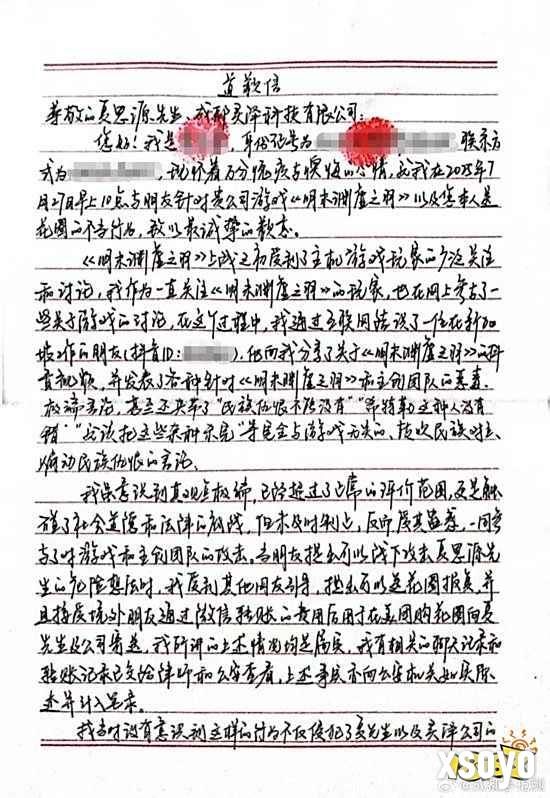 道歉信
尊敬的夏思源先生、成都灵泽科技有限公司：
您好！我是 ，身份证号为 联系方
式为 ，现怀着万分愧疚与懊悔的心情，为我在2025年7
月27日早上10点与朋友针对贵公司游戏《明末渊虚之羽》以及您本人送
花圈的不当行为，致以最诚挚的歉意。
《明末渊虚之羽》上线之初受到了主机游戏玩家的广泛关注
和讨论，我作为一直关注《明末渊虚之羽》的玩家，也在网上参与了一
些关于游戏的讨论，在这个过程中，我通过互联网结识了一位在新加
坡工作的朋友（抖音ID： ），他向我分享了关于《明末渊虚之羽》的
视频，并发表了各种针对《明末渊虚之羽》和主创团队的恶毒、
极端言论，甚至还夹带了“民族仇恨不能没有”“希特勒这种人没有
错”“应该把这些杂种杀完”等完全与游戏无关的、挑唆民族对立、
煽动民族仇恨的言论。
我虽意识到其观点极端，已经超过了正常的评价范围，更是触
碰了社会道德和法律的底线，但未及时制止，反而受其蛊惑，一同参
与了对游戏和主创团队的攻击。当朋友提出可以线下攻击夏思源先
生的危险想法时，我受到其他网友引导，提出可以送花圈报复，并
且接受境外朋友通过微信转账的费用后用于在美团购花圈向夏
先生及公司寄送，我所讲的上述情况均是属实，我有相关的聊天记录和
转账记录已交给律师和公安查看，上述事实亦向公安机关如实陈
述并计入笔录。
我当时没有意识到这样的行为不仅侵犯了夏先生以及灵泽公司的
xsoyo